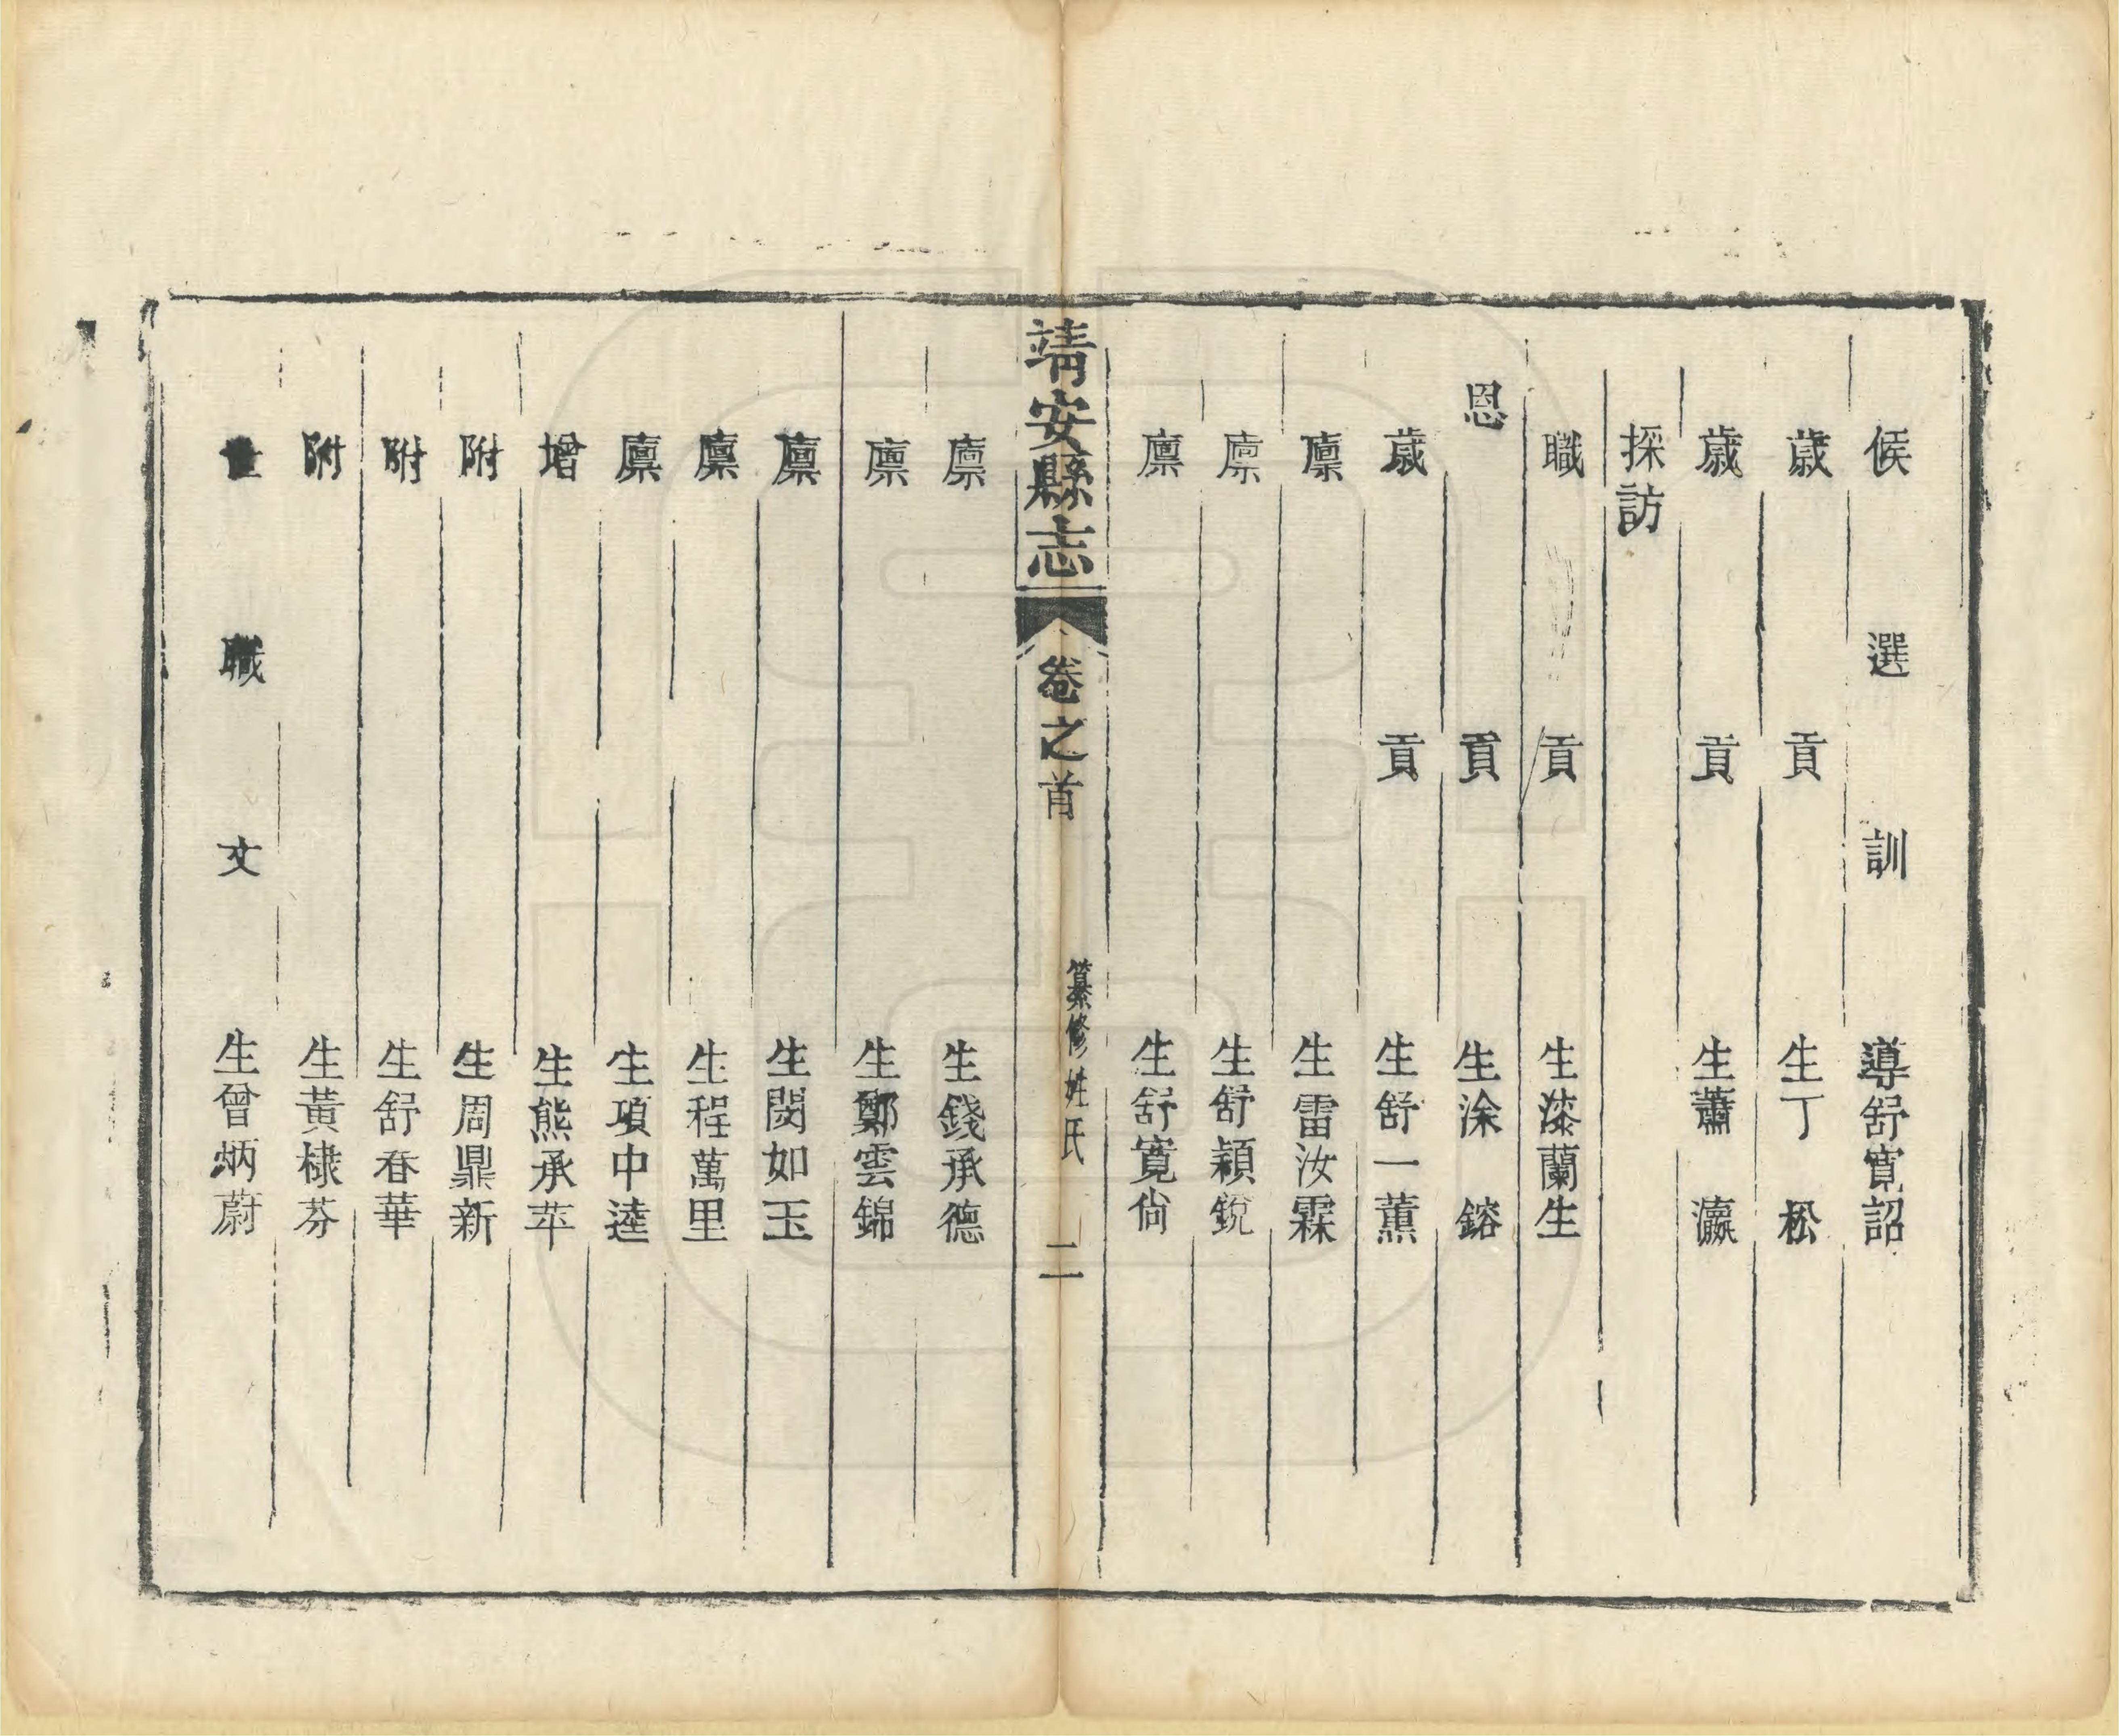 候選訓導舒寬詔
歲貢生丁松
歲貢生蕭瀛
採訪
職貢生漆蘭生
恩貢生涂鎔
歲貢生舒一薰
廪生雷汝霖
廪生舒穎銳
廪生舒寬尙
靖安縣志
卷之首
纂修姓氏
二
廪生錢承德
廪生鄭雲錦
廪生閔如玉
廪生程萬里
廪生項中逵
增生熊承苹
附生周鼎新
附生舒春華
附生黃棣芬
職文生曾炳蔚